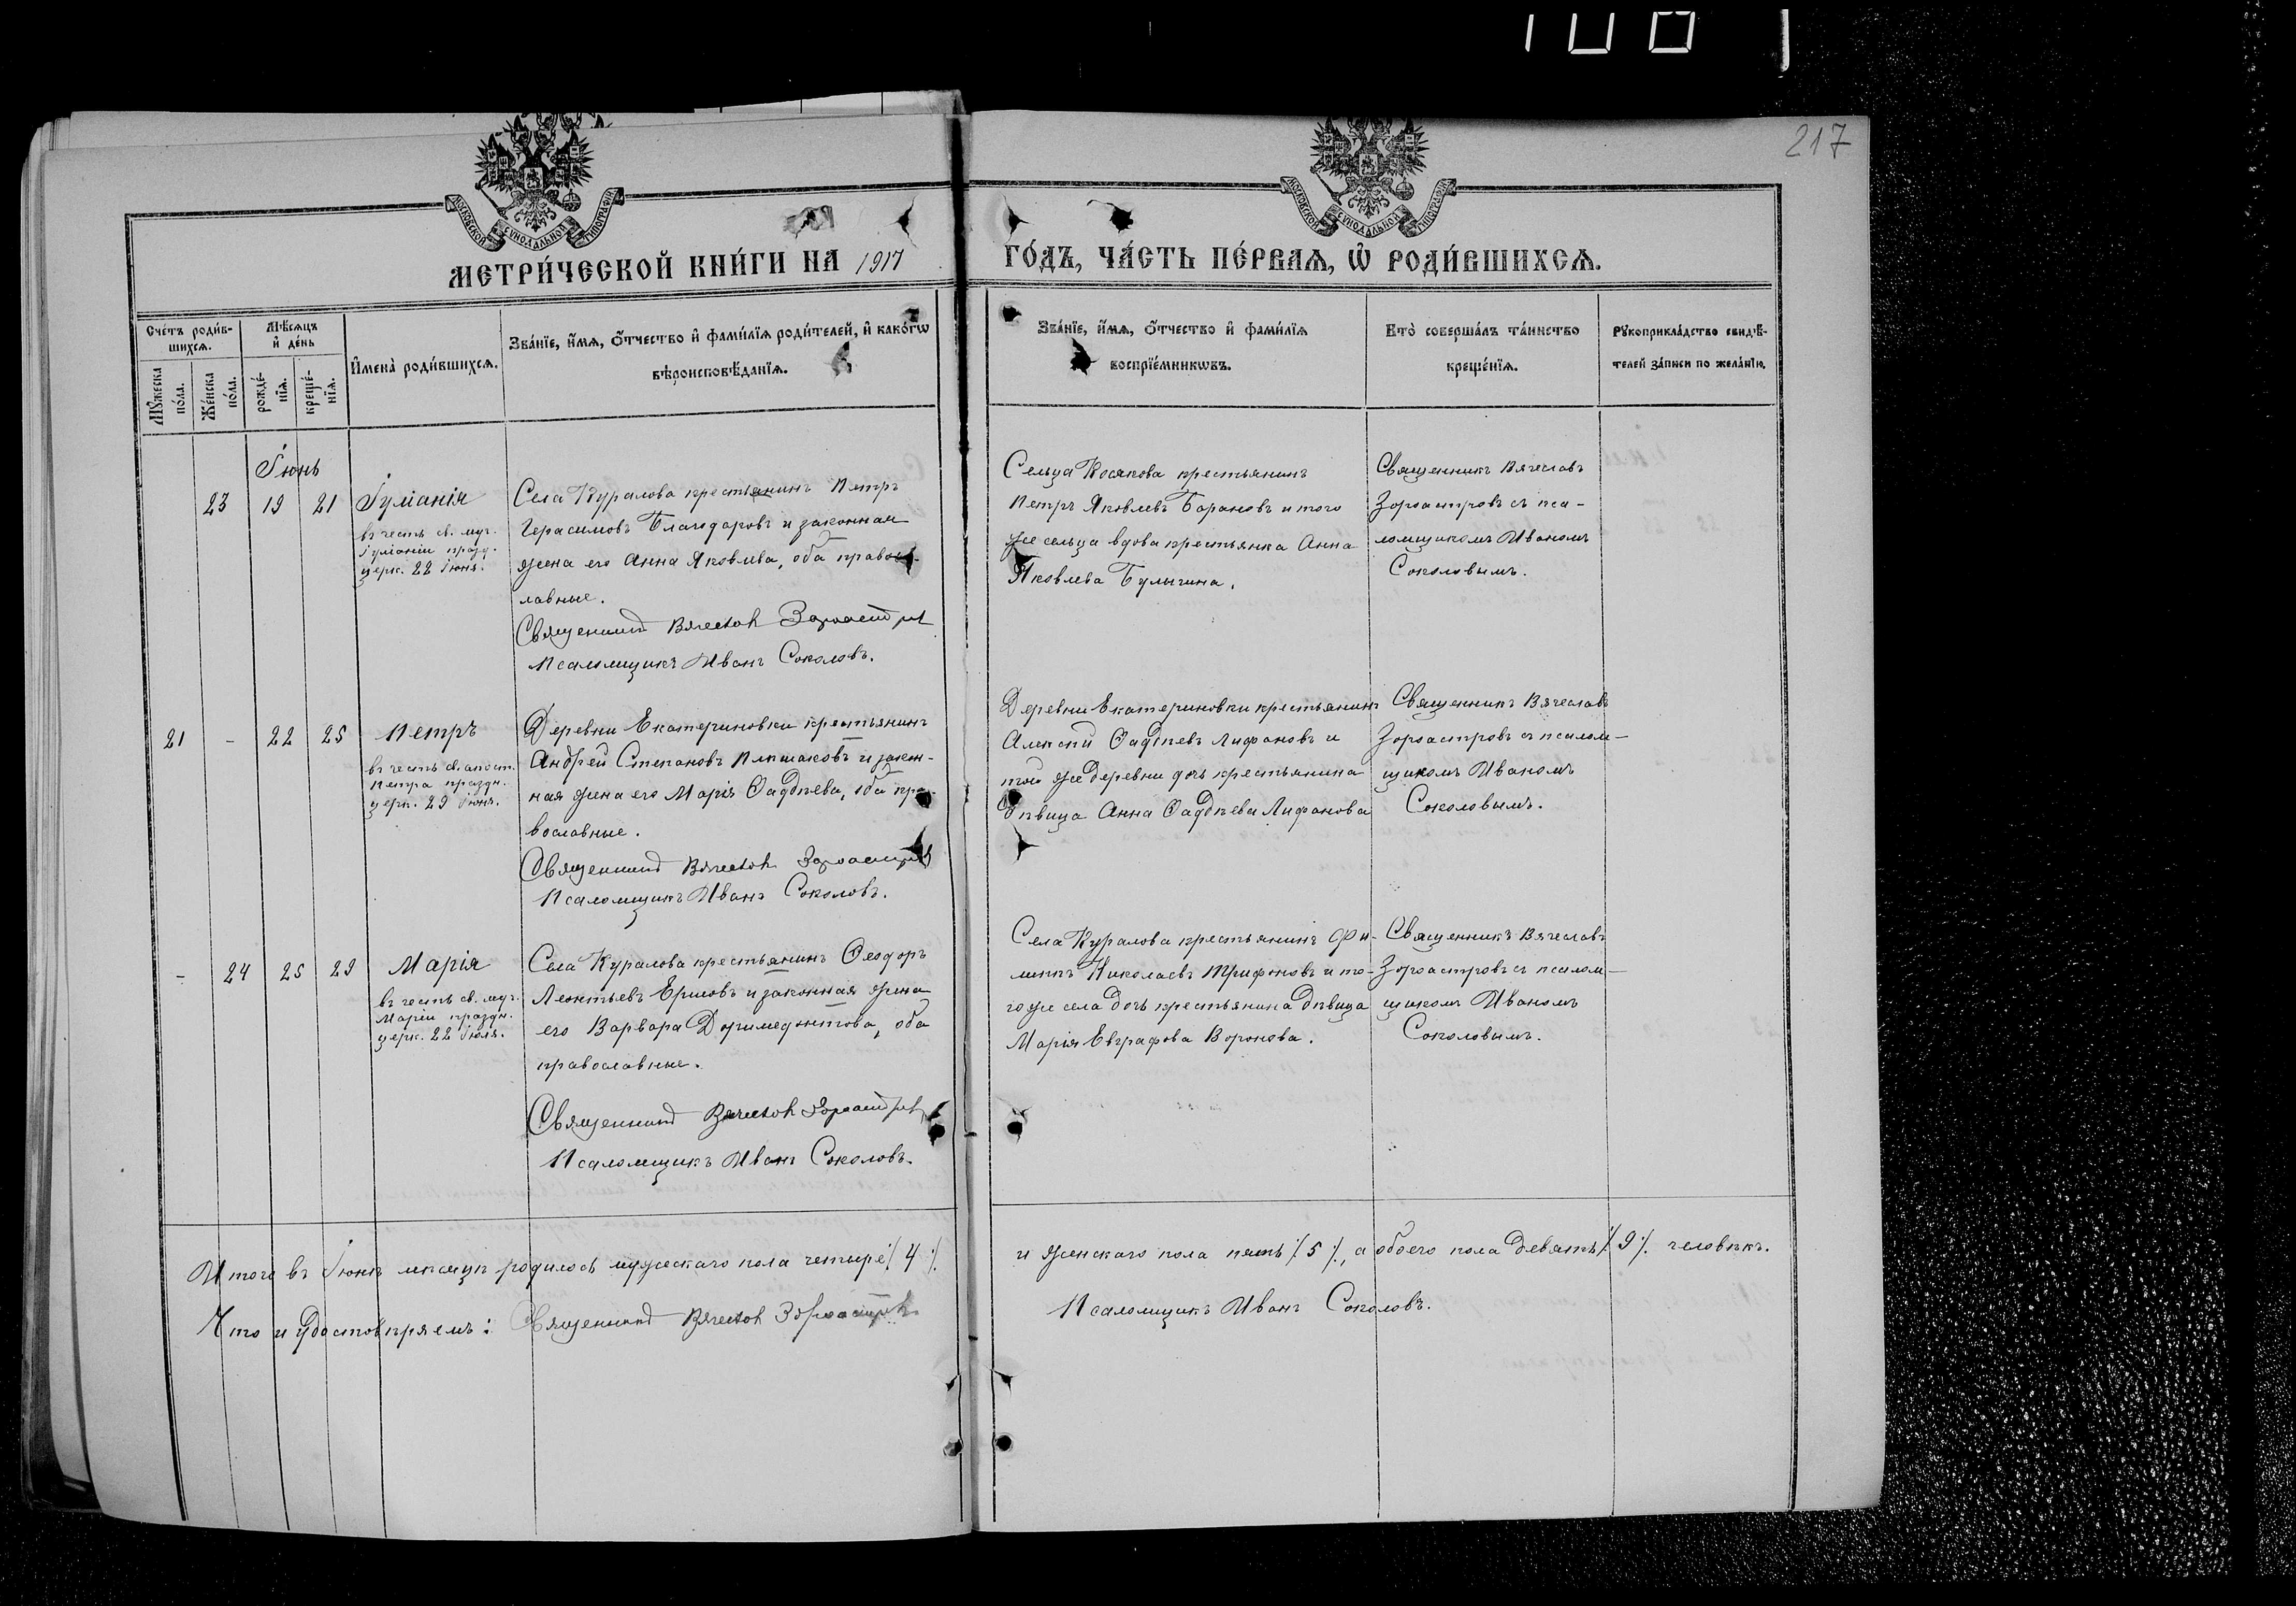 217
МОСКОВСКОЙ СѴНОДАЛЬНОЙ ТИПОГРАФІИ
МОСКОВСКОЙ СѴНОДАЛЬНОЙ ТИПОГРАФІИ
МЕТРИ́ЧЕСКОЙ КНИ́ГИ НА 1917 ГО́ДЪ, ЧА́СТЬ ПЕ́РВАЯ, Ѡ҆ РОДИ́ВШИХСЯ.
Сче́тъ роди́в-
шихся.
Мѣ́сяцъ
и҆ де́нь
Мꙋ́жеска
по́ла.
Же́нска
по́ла.
рожде́-
нїя.
креще́-
нїя.
И҆мена̀ роди́вшихся.
Зва́нїе, и҆́мя, ѻ҆́тчество и҆ фами́лїя роди́телей, и҆ како́гѡ
вѣроисповѣ́данїя.
Зва́нїе, и҆́мя, ѻ҆́тчество и҆ фами́лїя
воспрїе́мникѡвъ.
Кто̀ соверша́лъ та́инство
креще́нїя.
Рꙋкоприкла́дство свидѣ́-
телей за́писи по жела́нїю.
Іюнь
23 19 21 Іуліанія
въ честь св. муч.
Іуліаніи празд.
церк. 22 Іюня.
Села Куралова крестьянинъ Петръ
Герасимовъ Благодаровъ и законная
жена его Анна Яковлева, оба правос-
лавные.
Священникъ Вячеславъ Зороастровъ
Псаломщикъ Иванъ Соколовъ.
Сельца Косякова крестьянинъ
Петръ Яковлевъ Барановъ и того
же сельца вдова крестьянка Анна
Яковлева Булыгина.
Священникъ Вячеславъ
Зороастровъ съ пса-
ломщикомъ Иваномъ
Соколовымъ.
21 - 22 25 Петръ
въ честь св. апост.
Петра праздн.
церк. 29 Іюня.
Деревни Екатериновки крестьянинъ
Андрей Степановъ и закон-
ная жена его Марія Ѳаддѣева, оба пра-
вославные.
Священникъ Вячеславъ Зороастровъ
Псаломщикъ Иванъ Соколовъ.
Деревни Екатериновки крестьянинъ
Алексѣй Ѳаддѣевъ Лифановъ и
той же деревни дочь крестьянина
дѣвица Анна Ѳаддѣева Лифанова
Священникъ Вячеславъ
Зороастровъ съ псалом-
щикомъ Иваномъ
Соколовымъ.
- 24 25 29 Марія
въ честь св. мур.
Маріи праздн.
церк. 22 Іюля.
Села Куралова крестьянинъ Ѳеодоръ
Леонтьевъ Ершовъ и законная жена
его Варвара Доримедонтова, оба
православные.
Священникъ Вячеславъ Зороастровъ
Псаломщикъ Иванъ Соколовъ.
Села Куралова крестьянинъ Фи-
липпъ Николаевъ Трифоновъ и то-
го же села дочь крестьянина дѣвица
Марія Евграфова Воронова.
Священникъ Вячеславъ
Зороастровъ съ псалом-
щикомъ Иваномъ
Соколовымъ.
Итого въ Іюнѣ мѣсяцѣ родилось мужескаго пола четыре /:4:/ и женскаго пола пять /:5:/, а обоего пола девять /:9:/ человѣкъ.
Что и удостовѣряемъ: Священникъ Вячеславъ Зороастровъ Псаломщикъ Иванъ Соколовъ.